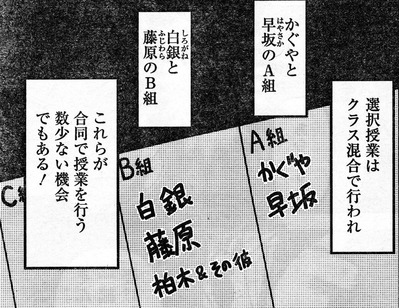 選択授業は
クラス混合で行われ
かぐやと
早坂のA組
はやさか
白銀と
藤原のB組
しろがね
ふじわら
これらが
合同で授業を行う
数少ない機会
でもある!
A組
かぐや
早坂
B組
白銀
藤原
柏木&その彼
C組